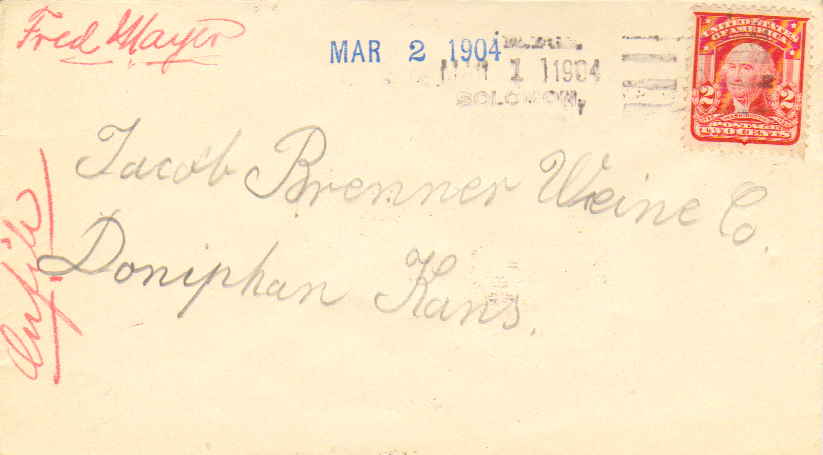 Fred Mayer
MAR 2 1904
MAR 1 1904
SOLOMON,
UNITED STATES
OF AMERICA
2 2
POSTAGE
TWO CENTS
Jacob Brenner Weine Co.
Doniphan Kans.